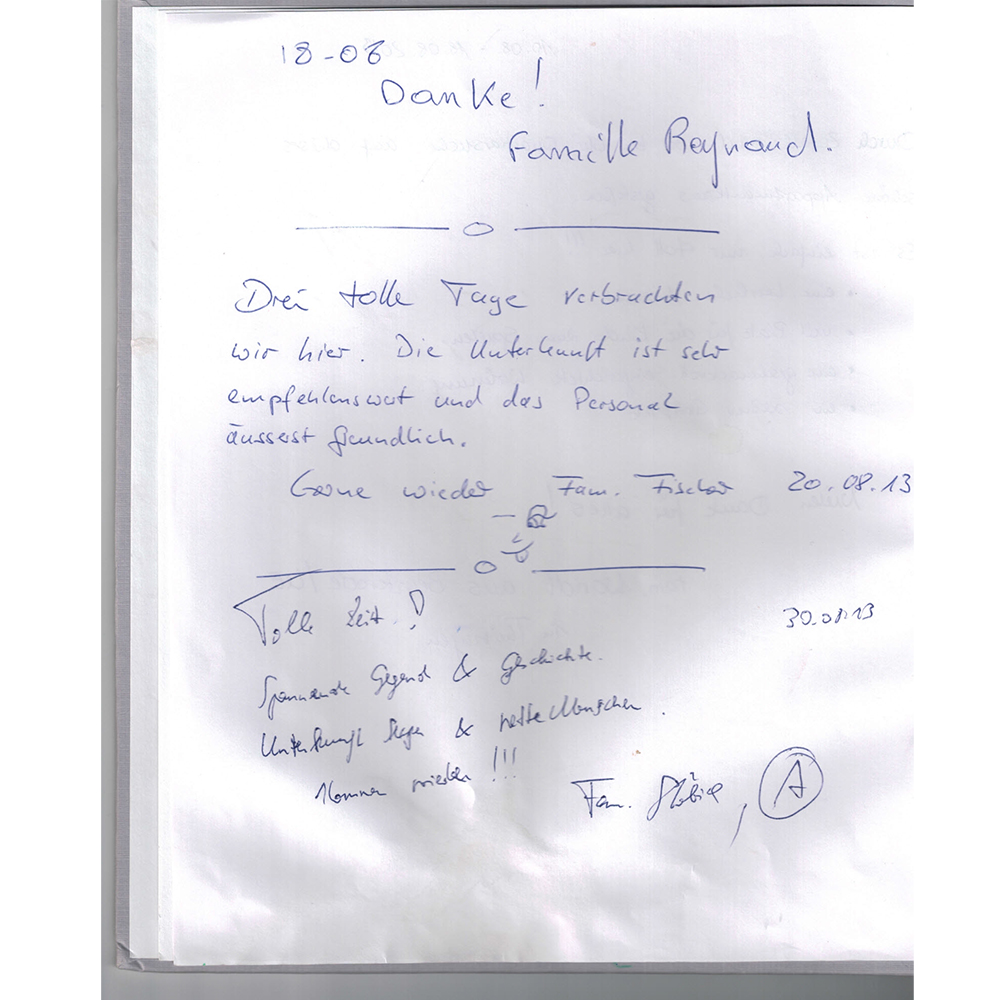 18-08
Danke!
Famille Reynaud.
Drei tolle Tage verbrachten
wir hier. Die Unterkunft ist sehr
empfehlenswert und das Personal
äusserst freundlich.
Gerne wieder Fam. Fischer 20.08.13
Tolle Zeit!
30.08.13
Spannende Gegend & Geschichte.
Unterkunft & nette Menschen.
Kommen wieder!!!
Fam. , A